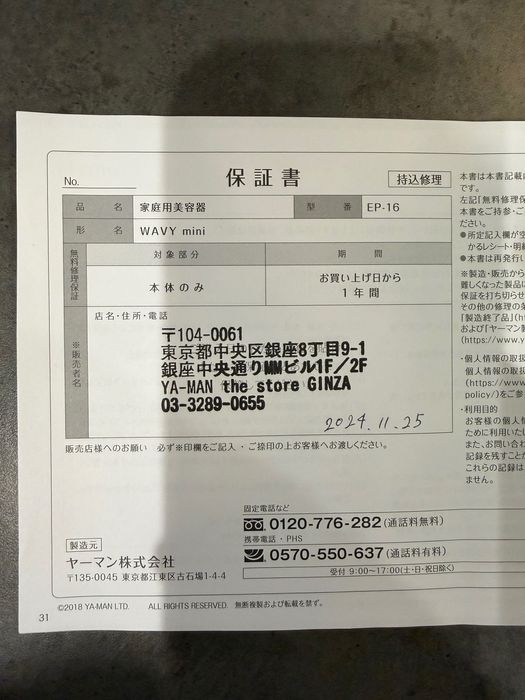 No.
保証書
持込修理
品名 家庭用美容器 型番 EP-16
形名 WAVY mini
無料修理保証
対象部分 期間
本体のみ お買い上げ日から
1年間
※販売者名
店名・住所・電話
〒104-0061
東京都中央区銀座8丁目9-1
銀座中央通りMMビル1F／2F
YA-MAN the store GINZA
03-3289-0655
2024.11.25
販売店様へのお願い 必ず※印欄をご記入・ご捺印の上お客様へお渡しください。
固定電話など
0120-776-282(通話料無料)
携帯電話・PHS
0570-550-637(通話料有料)
受付 9:00〜17:00(土・日・祝日除く)
製造元
ヤーマン株式会社
〒135-0045 東京都江東区古石場1-4-4
©2018 YA-MAN LTD. ALL RIGHTS RESERVED. 無断複製および転載を禁ず。
31
本書は本書記載
です。
左記「無料修理保
本書をご持参・ご
ださい。
●所定記入欄が空
かるレシート・明細
●本書は再発行い
※製造・販売から
難しくなった製品に
保証を打ち切らせ
その他の修理の条
「製造終了品」(ht
および「ヤーマン
(https://www.y
・個人情報の取扱
個人情報の取扱
(https://www
policy/)をご参
・利用目的
お客様の個人情
ために利用いた
また、お問い合わ
記録を残すことが
これらの記録は
ません。